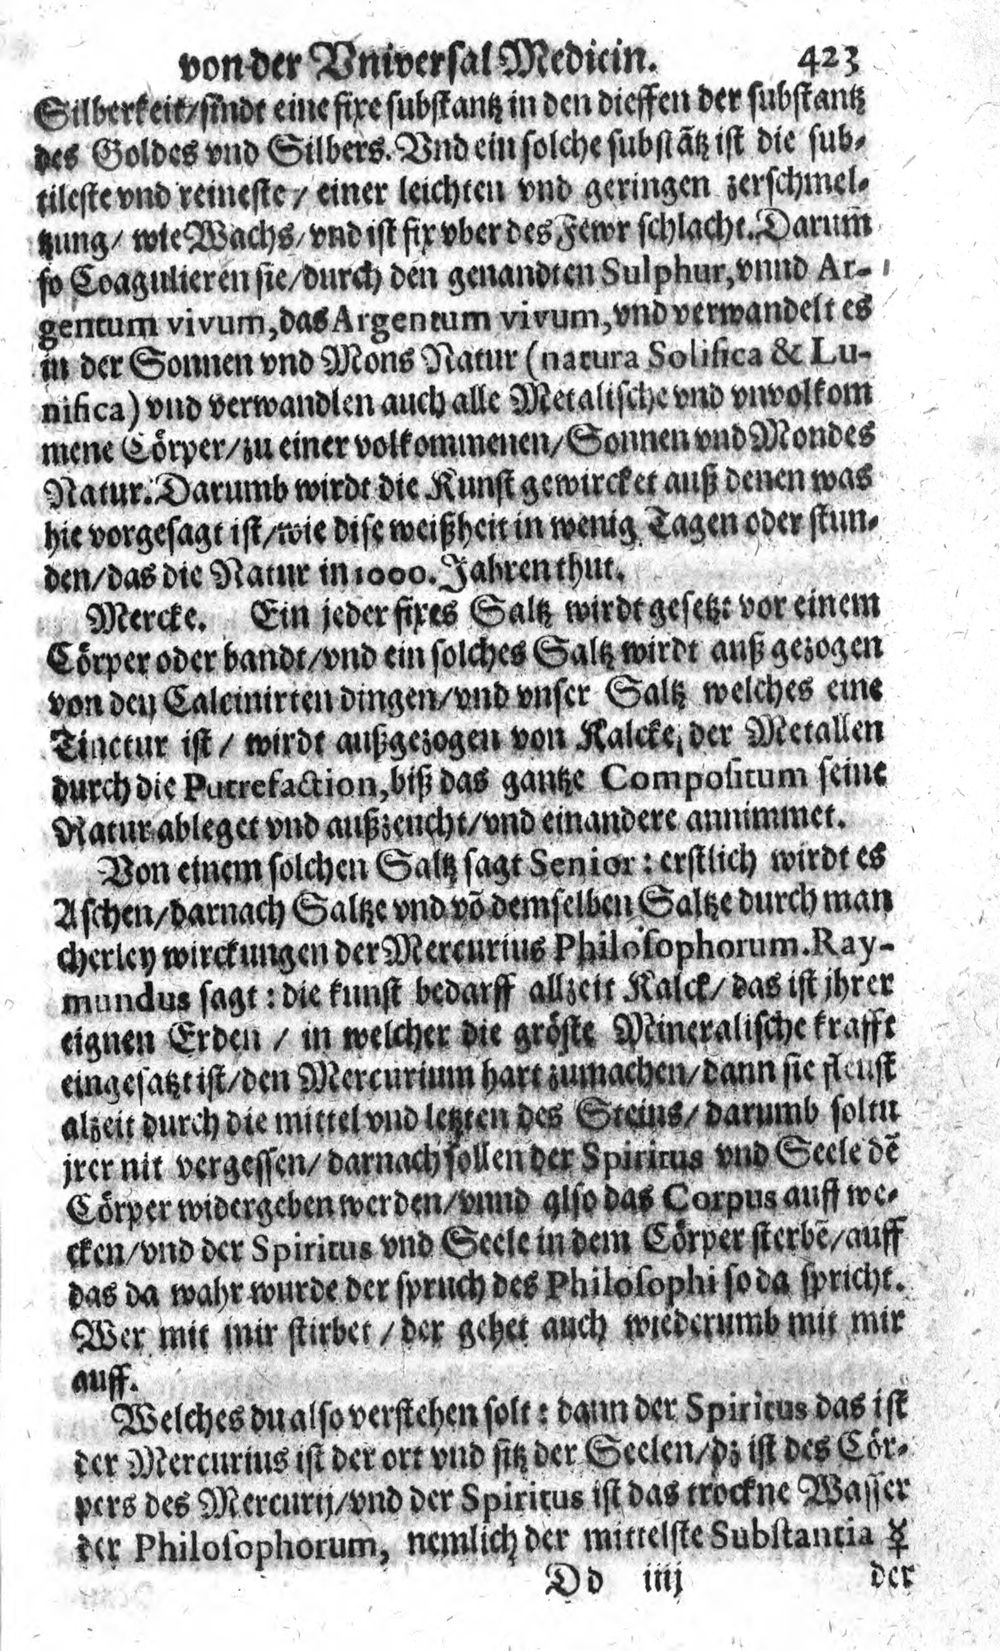 von der Vniversal Medicin. 423
Silberkeit/sindt eine fixe substantz in den dieffen der substantz
des Goldes vnd Silbers. Vnd ein solche substãtz ist die sub-
tileste vnd reineste / einer leichten vnd geringen zerschmel-
tzung/ wie Wachs/vnd ist fix vber des Fewr schlacht. Darum̃
so Coagulieren sie/durch den genandten Sulphur, vnnd Ar-
gentum vivum, das Argentum vivum, vnd verwandelt es
in der Sonnen vnd Mons Natur (natura Solifica & Lu-
nifica) vnd verwandlen auch alle Metalische vnd vnvolkom
mene Cörper/zu einer volkommenen/Sonnen vnd Mondes
Natur. Darumb wirdt die Kunst gewircket auß denen was
hie vorgesagt ist/wie dise weißheit in wenig Tagen oder stun-
den/das die Natur in 1000. Jahren thut.
Mercke. Ein jeder fixes Saltz wirdt gesetzt vor einem
Cörper oder bandt/vnd ein solches Saltz wirdt auß gezogen
von den Calcinirten dingen/vnd vnser Saltz welches eine
Tinctur ist / wirdt außgezogen von Kalcke, der Metallen
durch die Putrefaction, biß das gantze Compositum seine
Natur ableget vnd außzeucht/vnd ein andere annimmet.
Von einem solchen Saltz sagt Senior: erstlich wirdt es
Aschen/darnach Saltze vnd võ demselben Saltze durch man
cherley wirckungen der Mercurius Philosophorum. Ray-
mundus sagt: die kunst bedarff allzeit Kalck/das ist jhrer
eignen Erden / in welcher die gröste Mineralische krafft
eingesatzt ist/den Mercurium hart zumachen/dann sie fleust
alzeit durch die mittel vnd letzten des Steins/darumb soltu
jrer nit vergessen/darnach sollen der Spiritus vnd Seele dẽ
Cörper widergeben werden/vnnd also das Corpus auff we-
cken/vnd der Spiritus vnd Seele in dem Cörper sterbẽ/auff
das da wahr wurde der spruch des Philosophi so da spricht.
Wer mit mir stirbet / der gehet auch wiederumb mit mir
auff.
Welches du also verstehen solt: dann der Spiritus das ist
der Mercurius ist der ort vnd sitz der Seelen/dz ist des Cör-
pers des Mercurij/vnd der Spiritus ist das trockne Wasser
der Philosophorum, nemlich der mittelste Substantia ☿
Dd iiij der